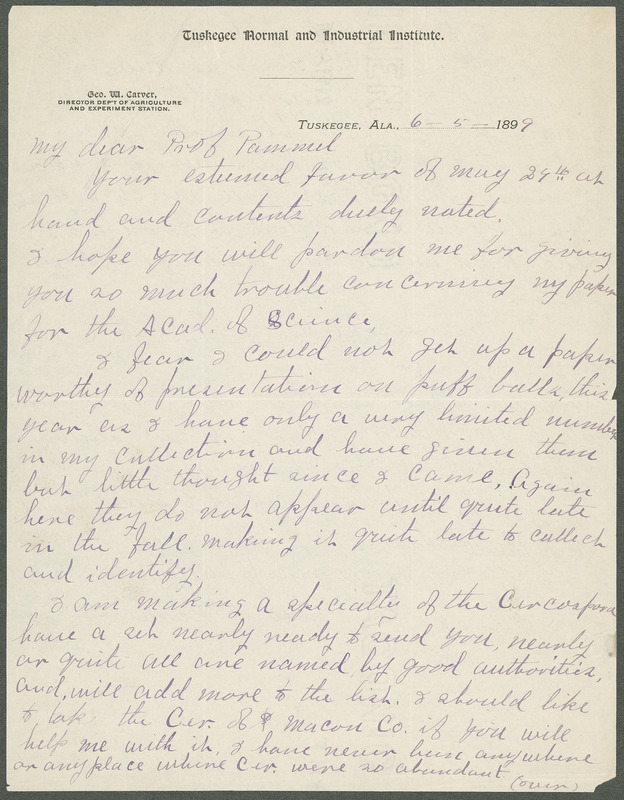 Tuskegee Normal and Industrial Institute.
Geo. W. Carver,
DIRECTOR DEP'T OF AGRICULTURE
AND EXPERIMENT STATION.
TUSKEGEE, ALA., 6 – 5 – 1899
My dear Prof Pammel
Your esteemed favor of May 29th at
hand and contents duely noted.
I hope you will pardon me for giving
you so much trouble concerning my paper
for the Acad. of Science,
I fear I could not get up a paper
worthy of presentation on puff balls, this
year as I have only a very limited number
in my collection and have given them
but little thought since I came. Again
here they do not appear until quite late
in the fall. making it quite late to collect
and identify.
I am making a specialty of the Cercospora
have a set nearly ready to send you, nearly
or quite all are named by good authorities,
and, will add more to the list. I should like
to the Cer. of Macon Co. if you will
help me with it. I have never been anywhere
or any place where Cer. were so abundant
(over)